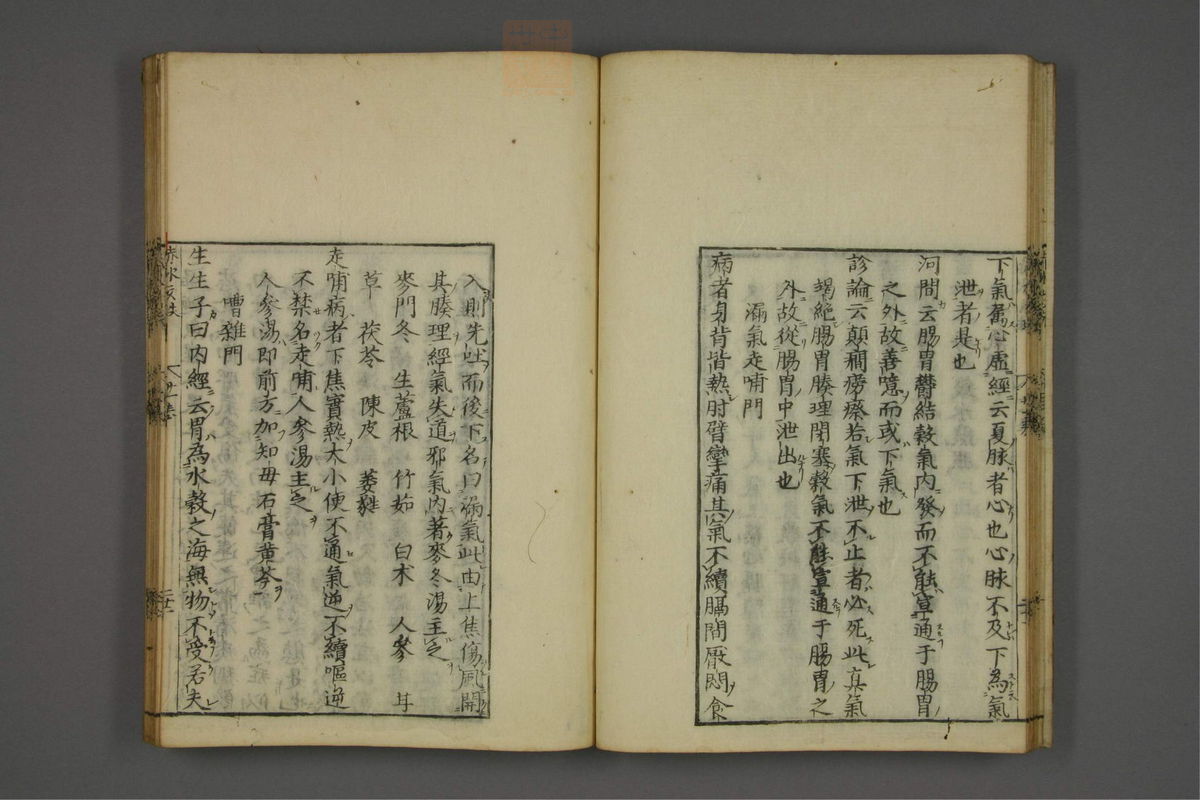 下氣為心虛經云夏脉者心也心脉不及下為氣
泄者是也
河間云腸胃鬱結穀氣內發而不能宣通于腸胃
之外故善噫而或下氣也
診論云顛癇癆瘵若氣下泄不止者必死此真氣
竭絕腸胃腠理閉塞穀氣不能宣通于腸胃之
外故從腸胃中泄出也
漏氣走哺門
病者身背皆熱肘臂攣痛其氣不續膈間厭悶食
入則先吐而後下名曰漏氣此由上焦傷風開
其腠理經氣失道邪氣內著麥冬湯主之
麥門冬 生蘆根 竹茹 白朮 人參 甘
草 茯苓 陳皮 萎蕤
走哺病者下焦實熱大小便不通氣逆不續嘔逆
不禁名走哺人參湯主之
人參湯即前方加知母石膏黃芩
嘈雜門
生生子曰內經云胃為水穀之海無物不受若夫
赤水玄珠